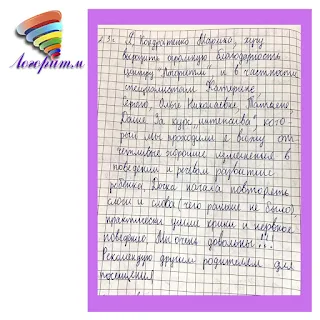 Логоритм
Я, Кондратенко Марина, хочу
выразить огромную благодарность
центру "Логоритм", и в частности
специалистам Катерине,
Ольге Николаевне, Татьяне,
Даше за курс "интенсива", кото
рый мы проходили я вижу от
чётливые хорошие изменения в
поведении и речевом развитие
ребёнка. Дочка начала повторять
слоги и слова (чего раньше не было),
практически ушли крики и нервное
поведение. Мы очень довольны!!!
Рекомендую другим родителям для
посещения